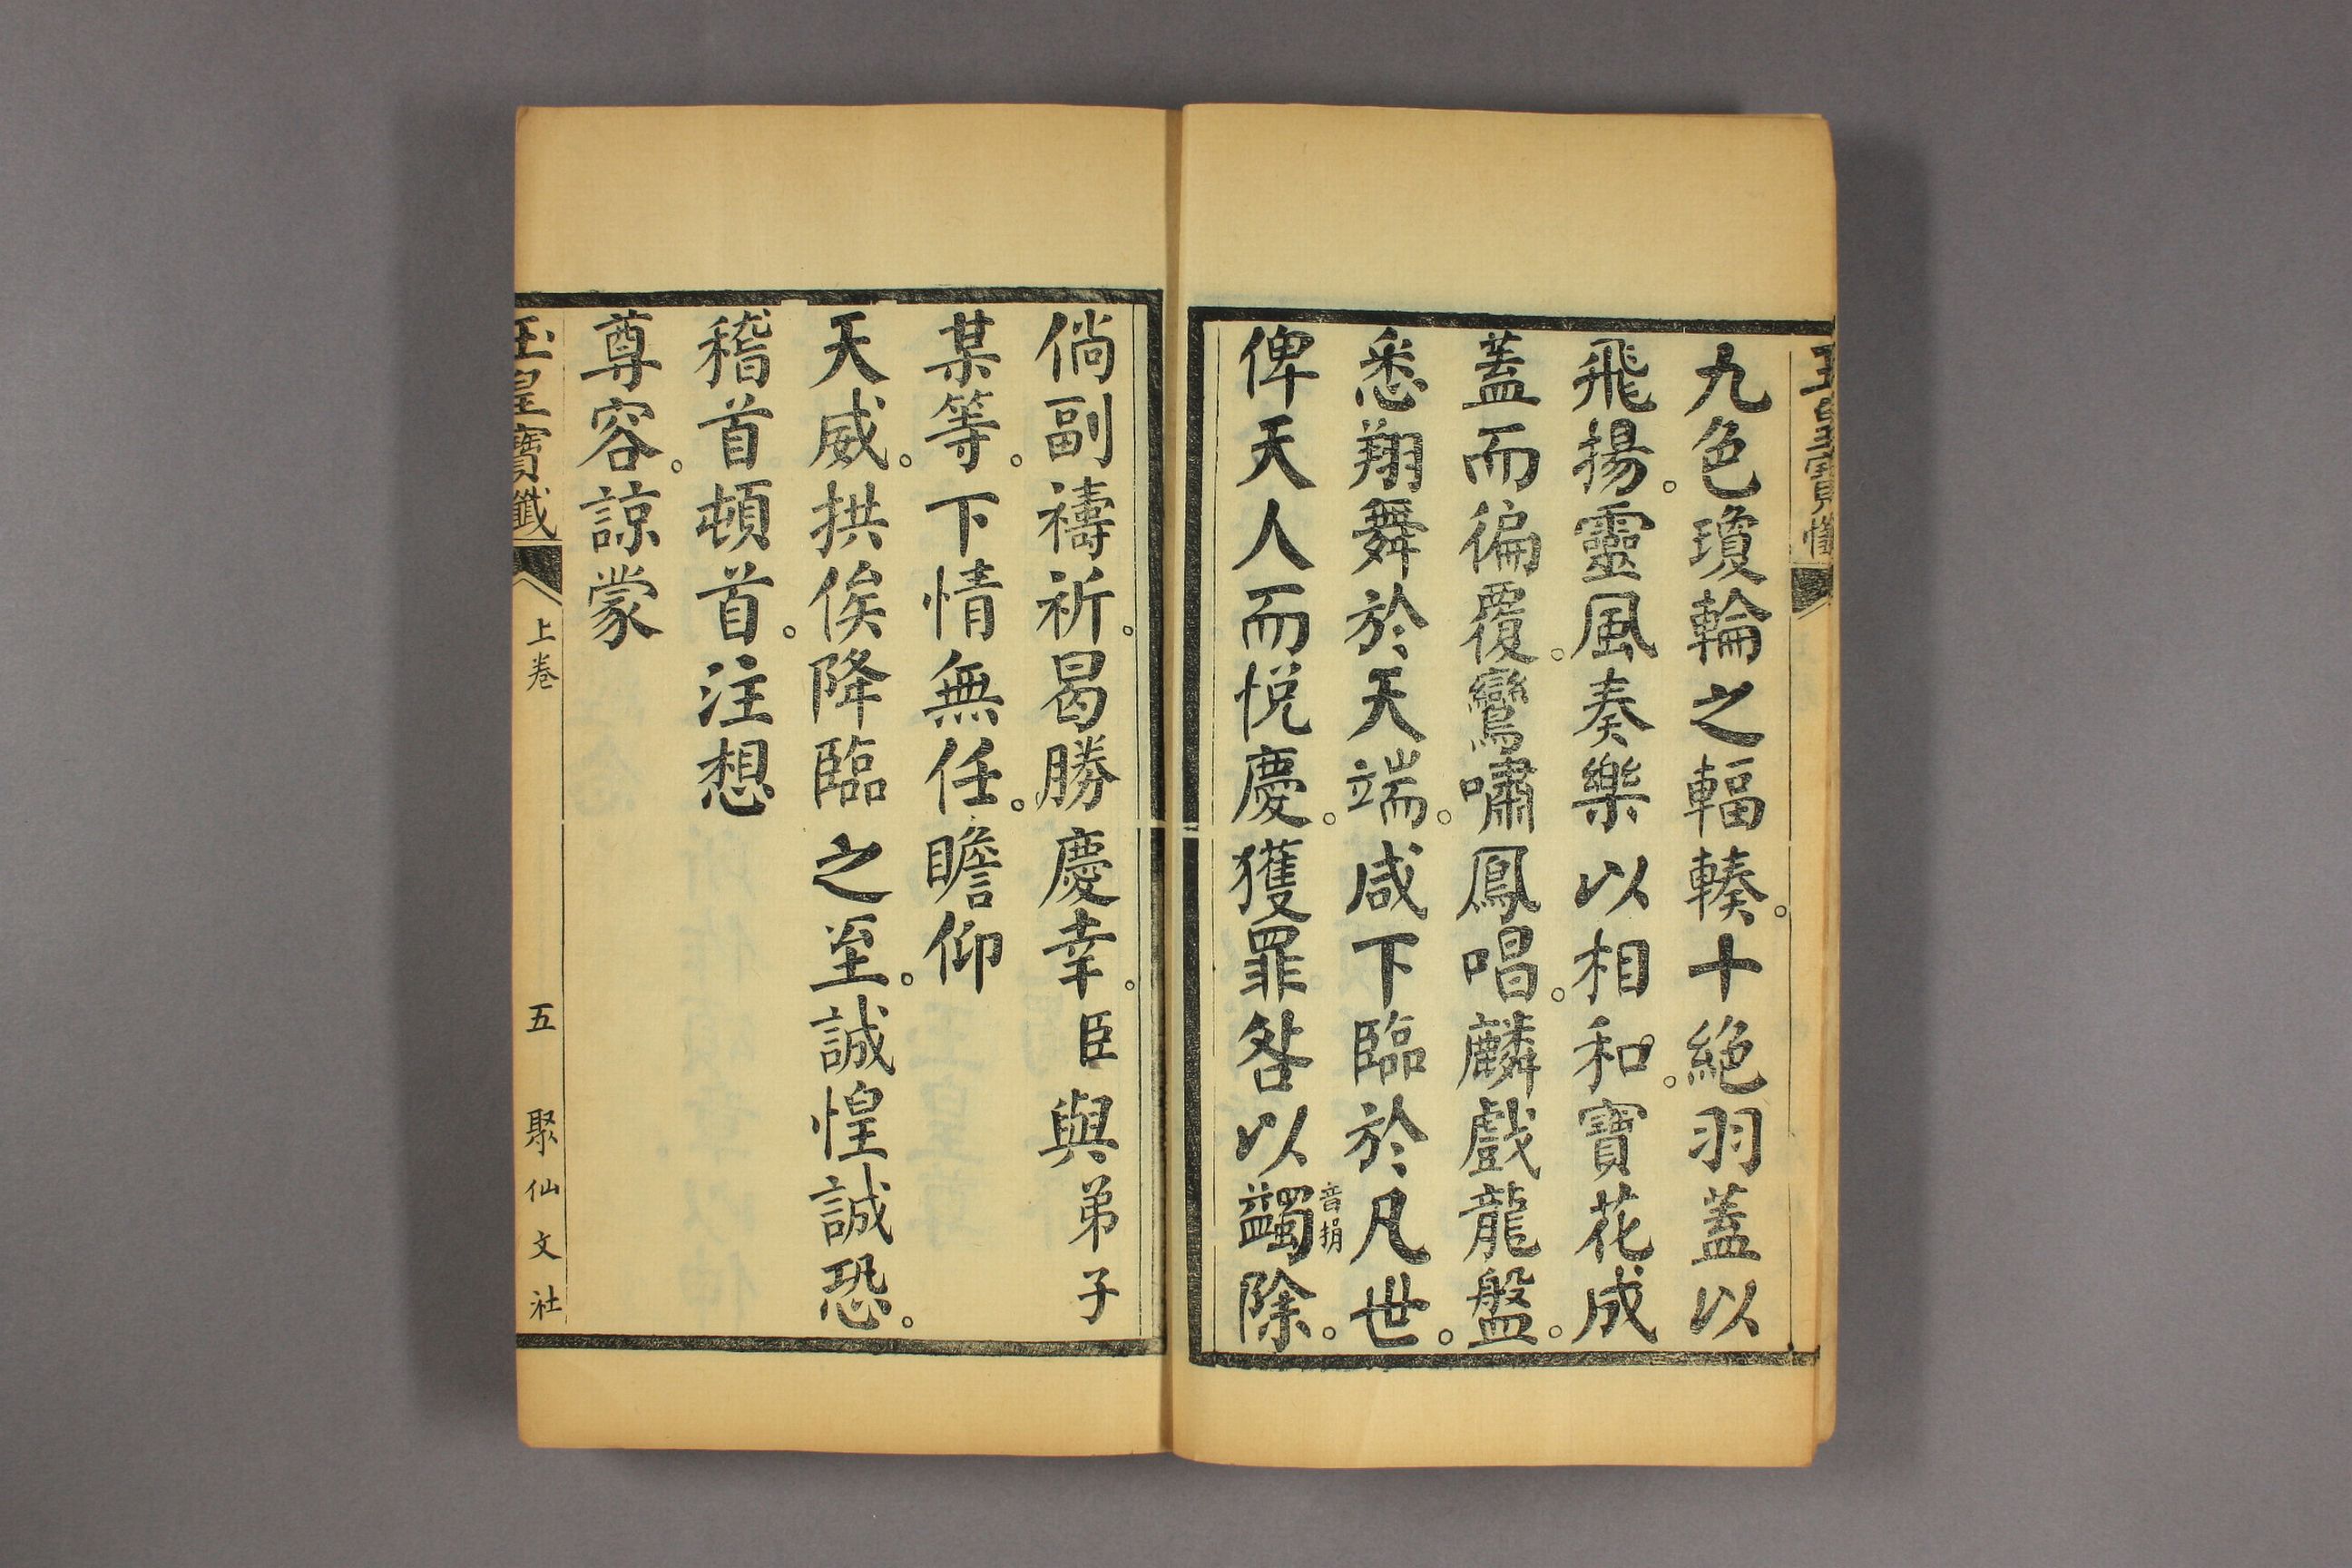 九色瓊輪之輻輳。十絕羽蓋以
飛揚。靈風奏樂以相和。寶花成
蓋而徧覆。鸞嘯鳳唱。麟戲龍盤。
悉翔舞於天端。咸下臨於凡世。
俾天人而悅慶。獲罪咎以蠲除。
音捐
倘副禱祈。曷勝慶幸。臣與弟子
某等。下情無任。瞻仰
天威。拱俟降臨之至。誠惶誠恐。
稽首頓首。注想
尊容。諒蒙
玉皇寶懺
上卷
五
聚仙文社